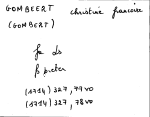 GOMBEERT christine francoise
(GOMBERT)
fa ds
ß pieter
(1714) 327, 77 vo
(1714) 327, 78 vo